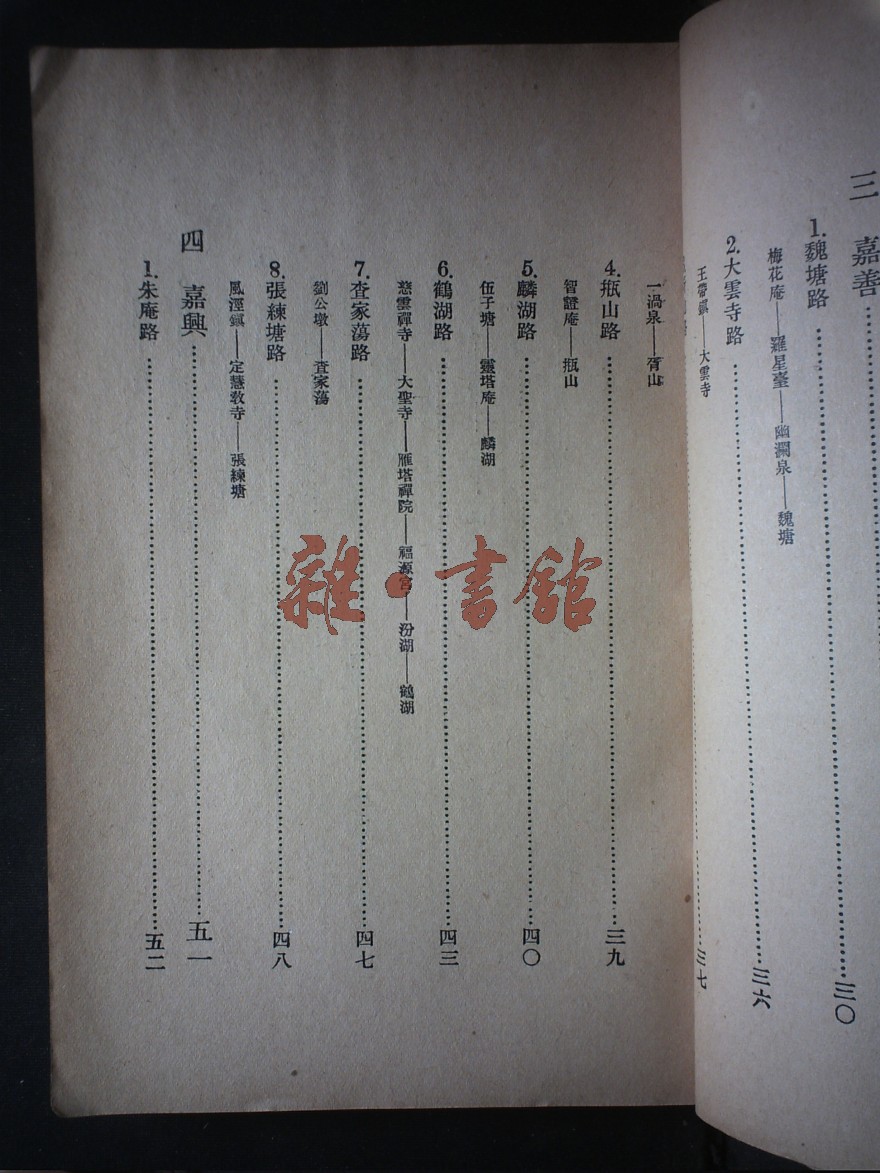 三 嘉善
1.魏塘路……三〇
梅花庵——羅星臺——幽瀾泉——魏塘
2.大雲寺路……三六
大雲寺
路……三七
一渦泉——胥山
4.瓶山路……三九
智證庵——瓶山
5.麟湖路……四〇
伍子塘——靈塔庵——麟湖
6.鶴湖路……四三
慈雲禪寺——大聖寺——雁塔禪院——福源宮——汾湖——鶴湖
7.查家蕩路……四七
劉公墩——查家蕩
8.張練塘路……四八
風涇鎮——定慧教寺——張練塘
四 嘉興……五一
1.朱庵路……五二
雜·書館